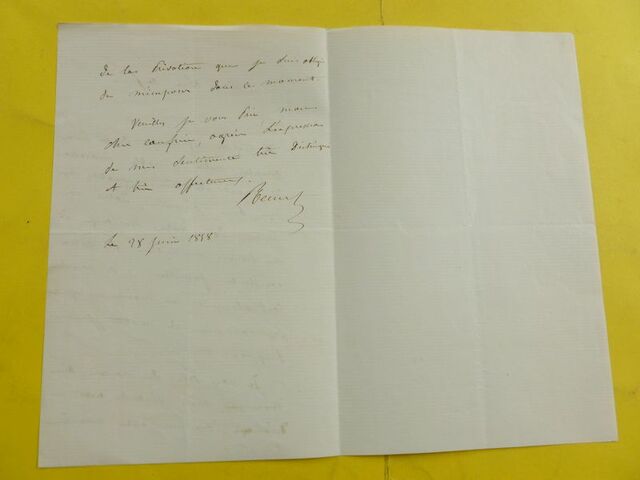 de la privation que je suis obligé
de m'imposer dans ce moment
Veuillez je vous prie mon
cher confrère, agréer l'expression
de mes sentiments très distingués
et très affectueux.
Le 28 Juin 1858